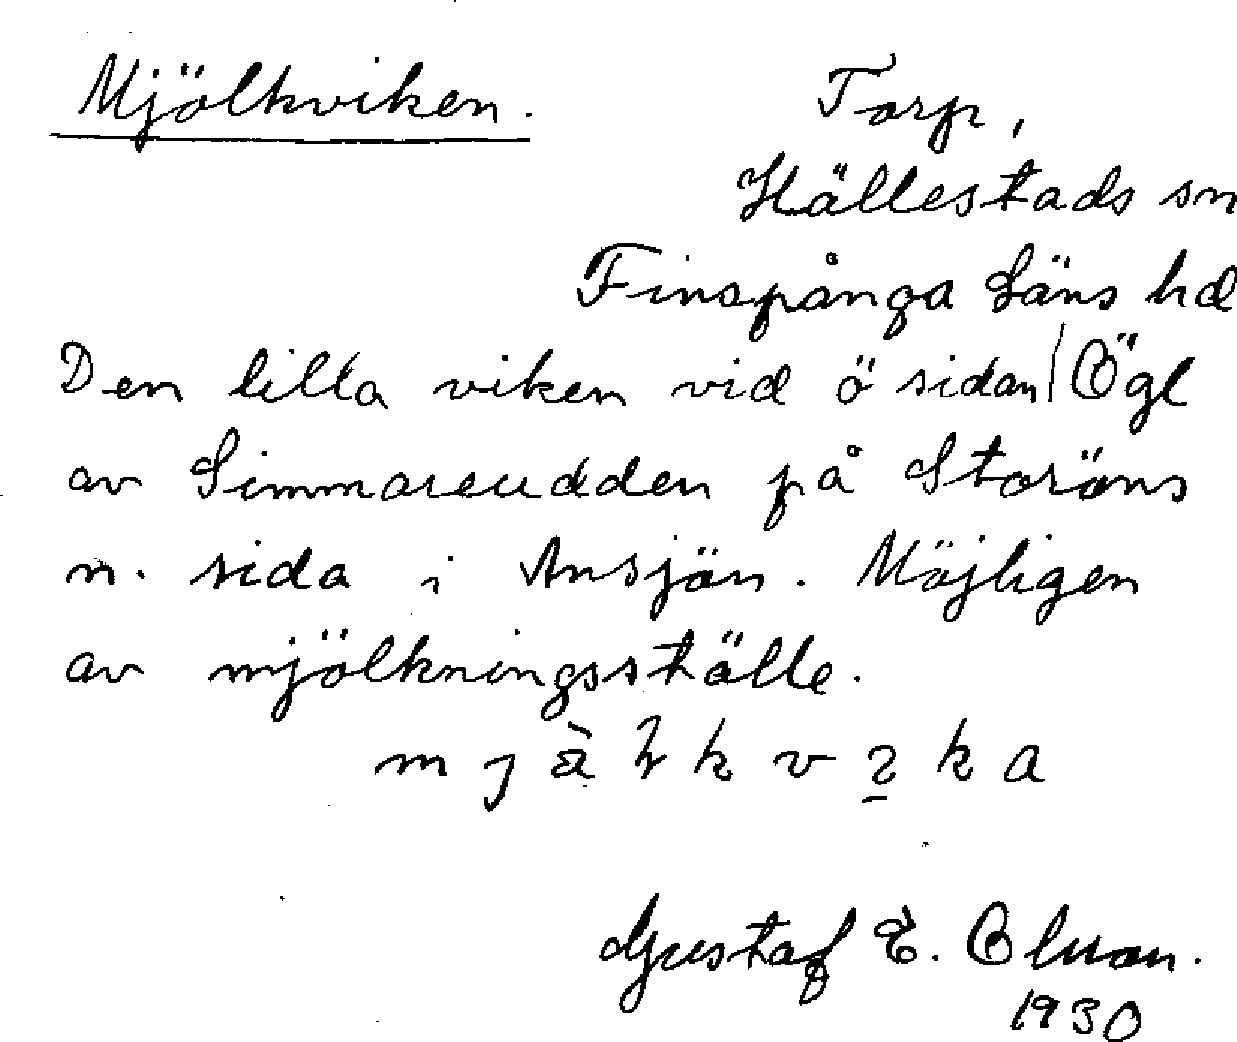 Mjölkviken. Torp,
Hällestads sn
Finspånga Läns hd
Den lilla viken vid ö sidan / Ögl
av Simmareudden på Storöns
n. sida i Ansjön. Möjligen
av mjölkningsställe.
Gustaf E.
1930